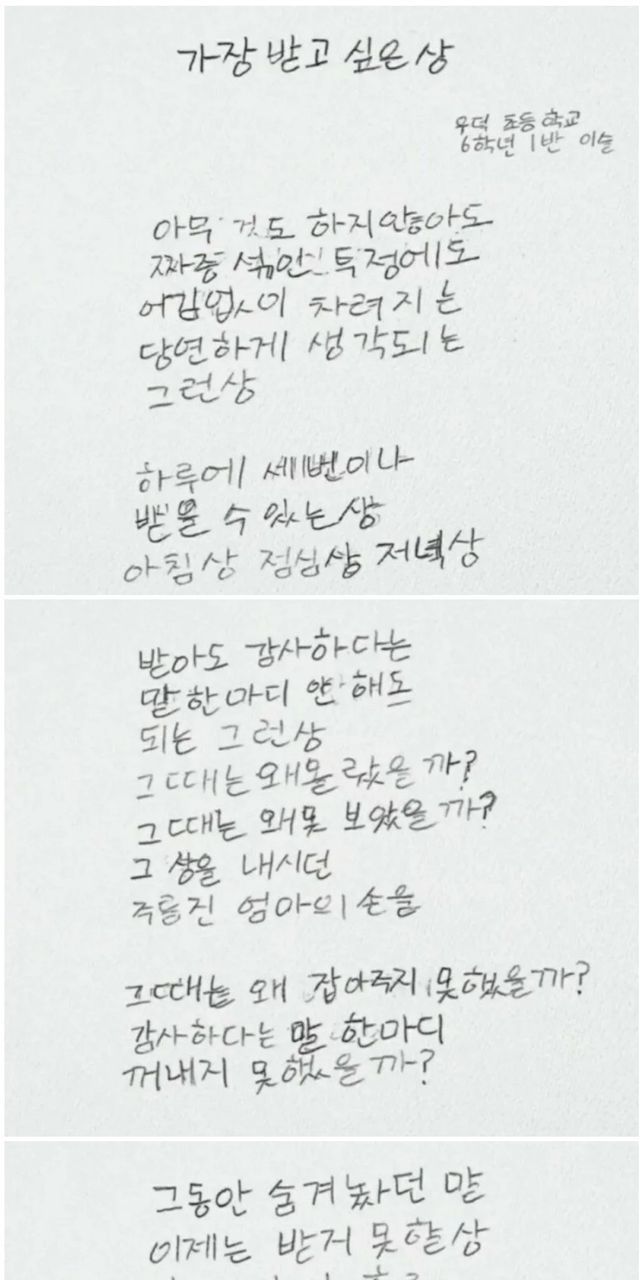 가장 받고 싶은 상
우덕 초등학교
6학년 1반 이슬
아무것도 하지않아도
짜증 섞인 투정에도
어김없이 차려지는
당연하게 생각되는
그런상
하루에 세번이나
받을 수 있는 상
아침상 점심상 저녁상
받아도 감사하다는
말 한마디 안 해도
되는 그런상
그때는 왜 몰랐을까?
그때는 왜 못 보았을까?
그 상을 내시던
주름진 엄마의 손을
그때는 왜 잡아주지 못했을까?
감사하다는 말 한마디
꺼내지 못했을까?
그동안 숨겨놨던 말
이제는 받지 못할상